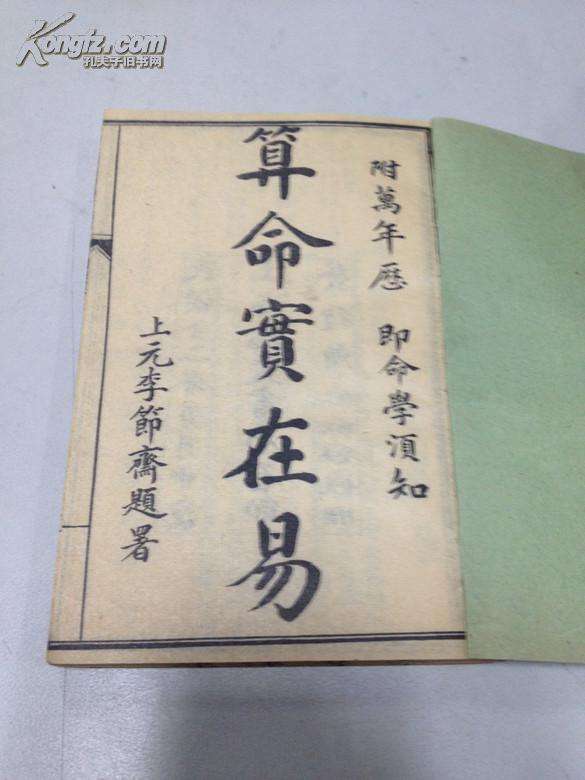 Kongfz.com
孔夫子旧书网
附萬年歷 即命學須知
算命實在易
上元李節齋題署